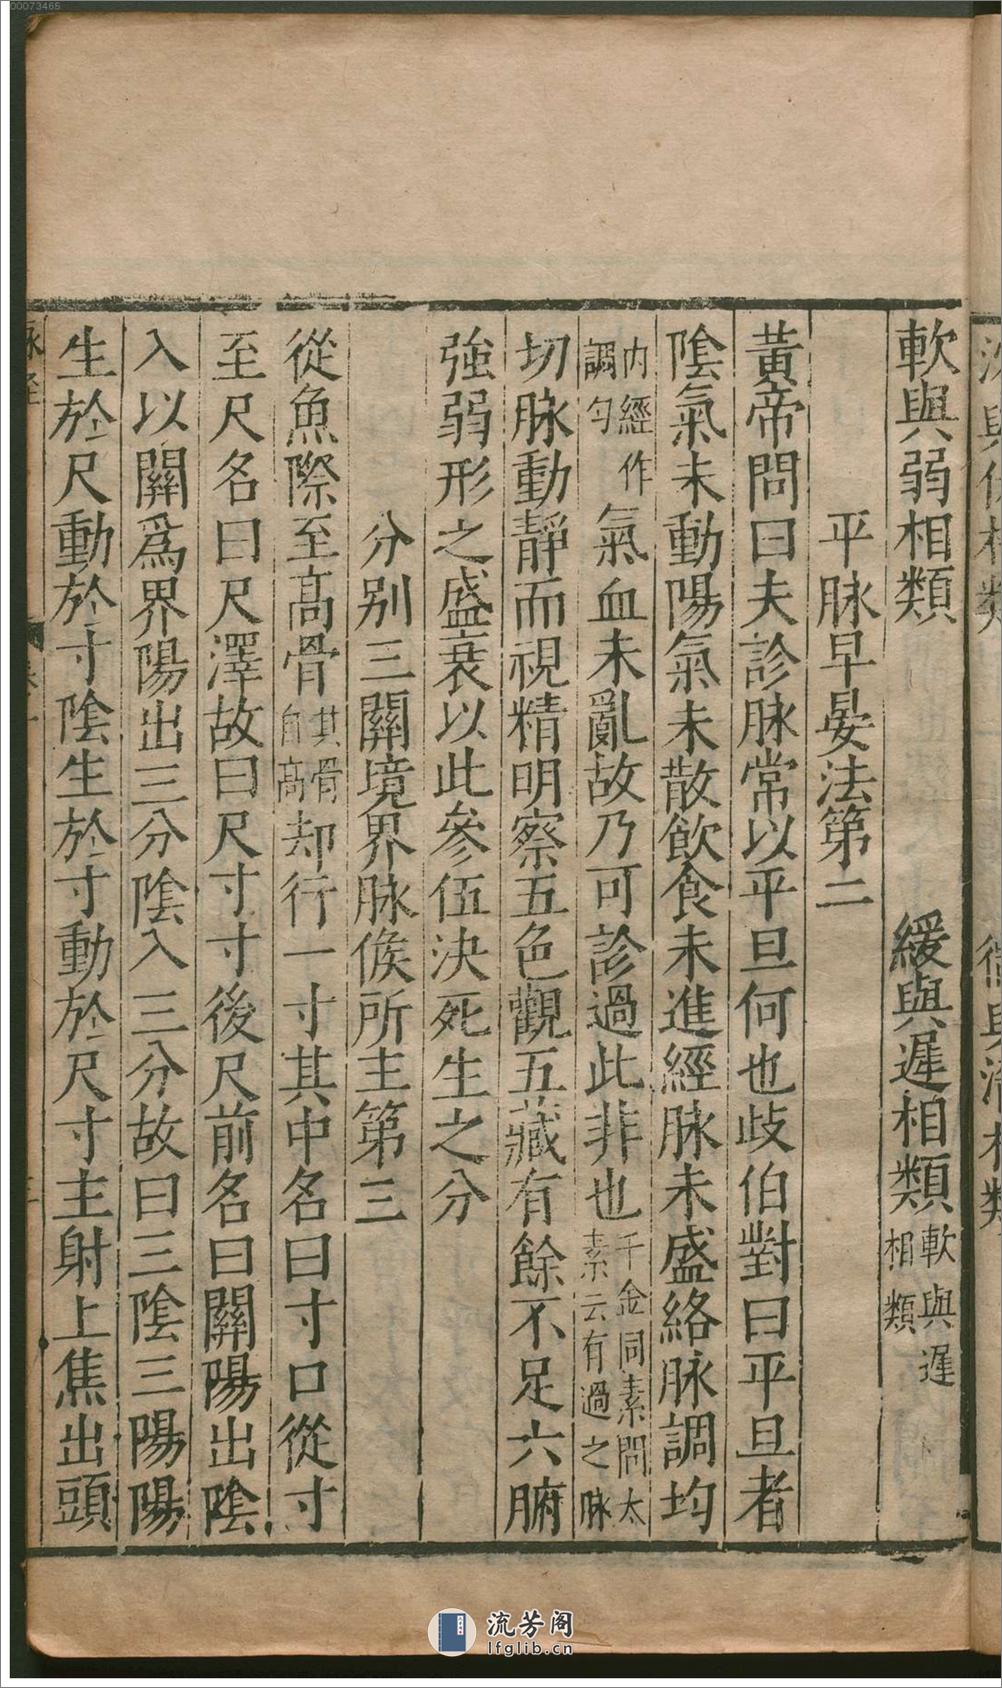 軟與弱相類　緩與遲相類軟與遲相類
平脉早晏法第二
黃帝問曰夫診脉常以平旦何也歧伯對曰平旦者
陰氣未動陽氣未散飲食未進經脉未盛絡脉調均
内經作調勻氣血未亂故乃可診過此非也千金同素問太素云有過之脉
切脉動靜而視精明察五色觀五藏有餘不足六腑
強弱形之盛衰以此參伍決死生之分
分別三關境界脉候所主第三
從魚際至高骨其骨自高却行一寸其中名曰寸口從寸
至尺名曰尺澤故曰尺寸寸後尺前名曰關陽出陰
入以關爲界陽出三分陰入三分故曰三陰三陽陽
生於尺動於寸陰生於寸動於尺寸主射上焦出頭
脉經
00073465
流芳阁
lfglib.cn